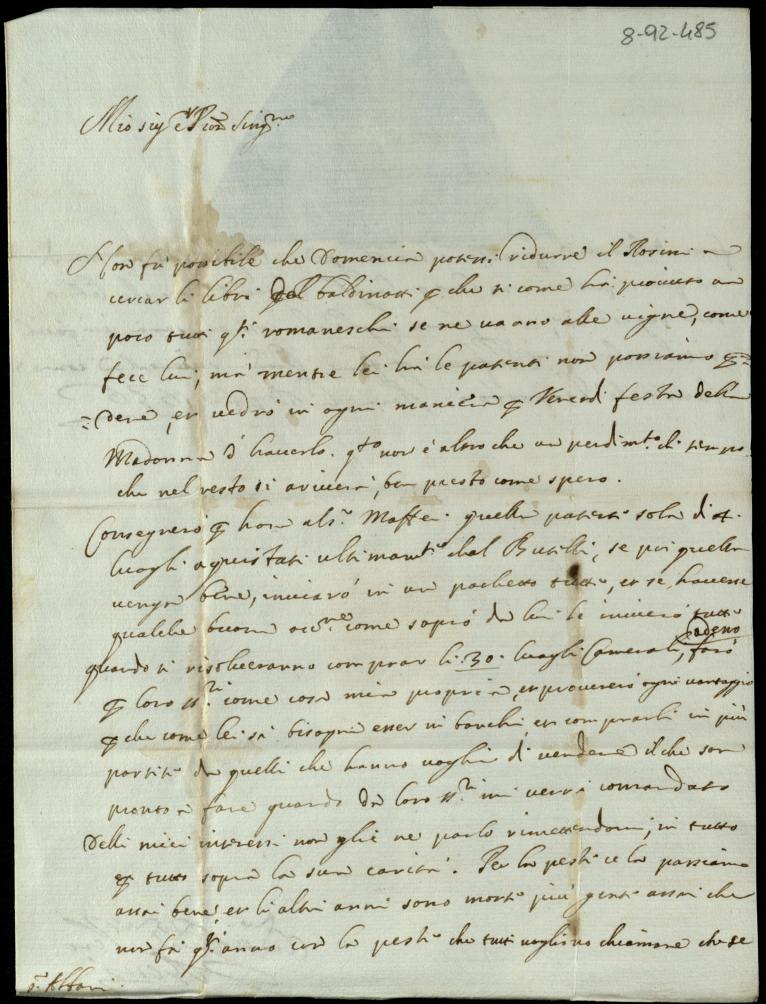 8-92-485
Mio sig.r e Pron Sing.mo
Non fù possibile che Domenica potessi ridurre il Rosini a
cercar li libri del baldinotti p che si come hà piovuto un
poco tutti q.ti romaneschi se ne vanno alle vigne, come
fece lui, mà mentre lei hà le patenti non possiamo
dere, et vedrò in ogni maniera p Venerdi festa della
Madonna d'haverlo. q.to non è altro che un perdim.to di tempo
che nel resto si arriverà, ben presto come spero.
Consegnerò p hora al s.r Maffei quella patente sola di 4.
luoghi aquistati ultimam.te dal , se poi quella
venga bene, inviarò in un pachetto tutto, et se havesse
qualche buona occ.ne come saprò da lui le invierò tutte
quando si risolveranno comprar li 30. luoghi Camerali, farò
p loro ss.ri come cosa mia propria, et procurerò ogni vantaggio
p che come lei sà bisogna esser in banchi et comprarli in più
partite da quelli che hanno voglia di vendere il che son
pronto à fare quando da loro ss.ri mi verrà comandato
Delli miei interessi non glie ne parlo rimettendomi, in tutto
et p tutto sopra la sua carità. Per la peste ce la passiamo
assai bene, et li altri anni sono morti più genti assai che
non fà q.to anno con la peste che tutti vogliono chiamare che se